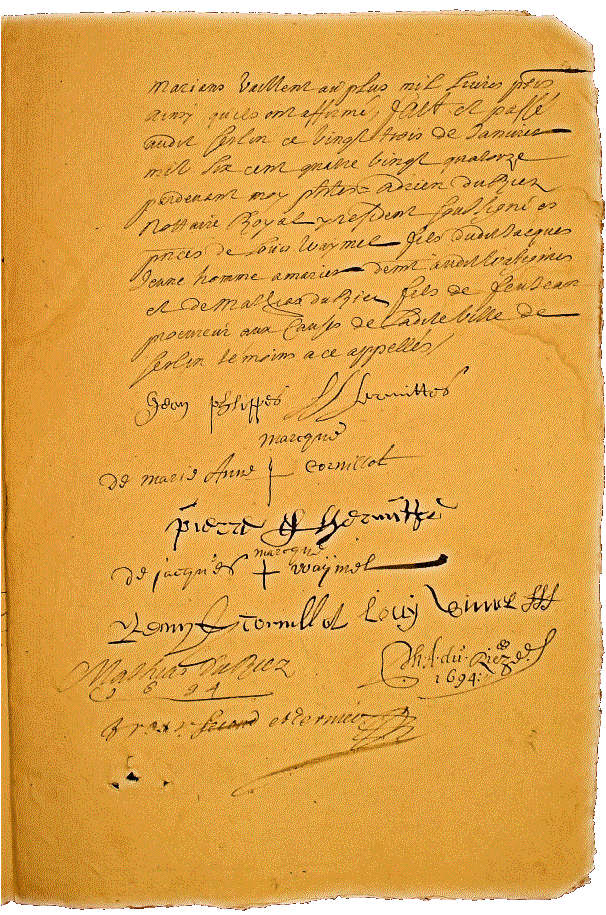 marians vaillent au plus mil livres
ainsy quils ont affirmé, fait et passé
audit ce vingt trois de Janvier
mil six cent quatre vingt quatorze
pardevant moy Adrien duRiez
Nottaire Royal y resident soussigné es
pnces de Louis waymel fils dudit Jacques
Jeune homme a marier demt audit
et de Mathias duRiez fils de feu Jean
procureur aux Causes de ladite ville de
temoins a ce appelles
Jean philippes
marcque
de marie Anne Cornillot
pierre
marcque
de jacques waymel
Cornillot Louy
Mathias DuRiez
1694
du Riez
1694